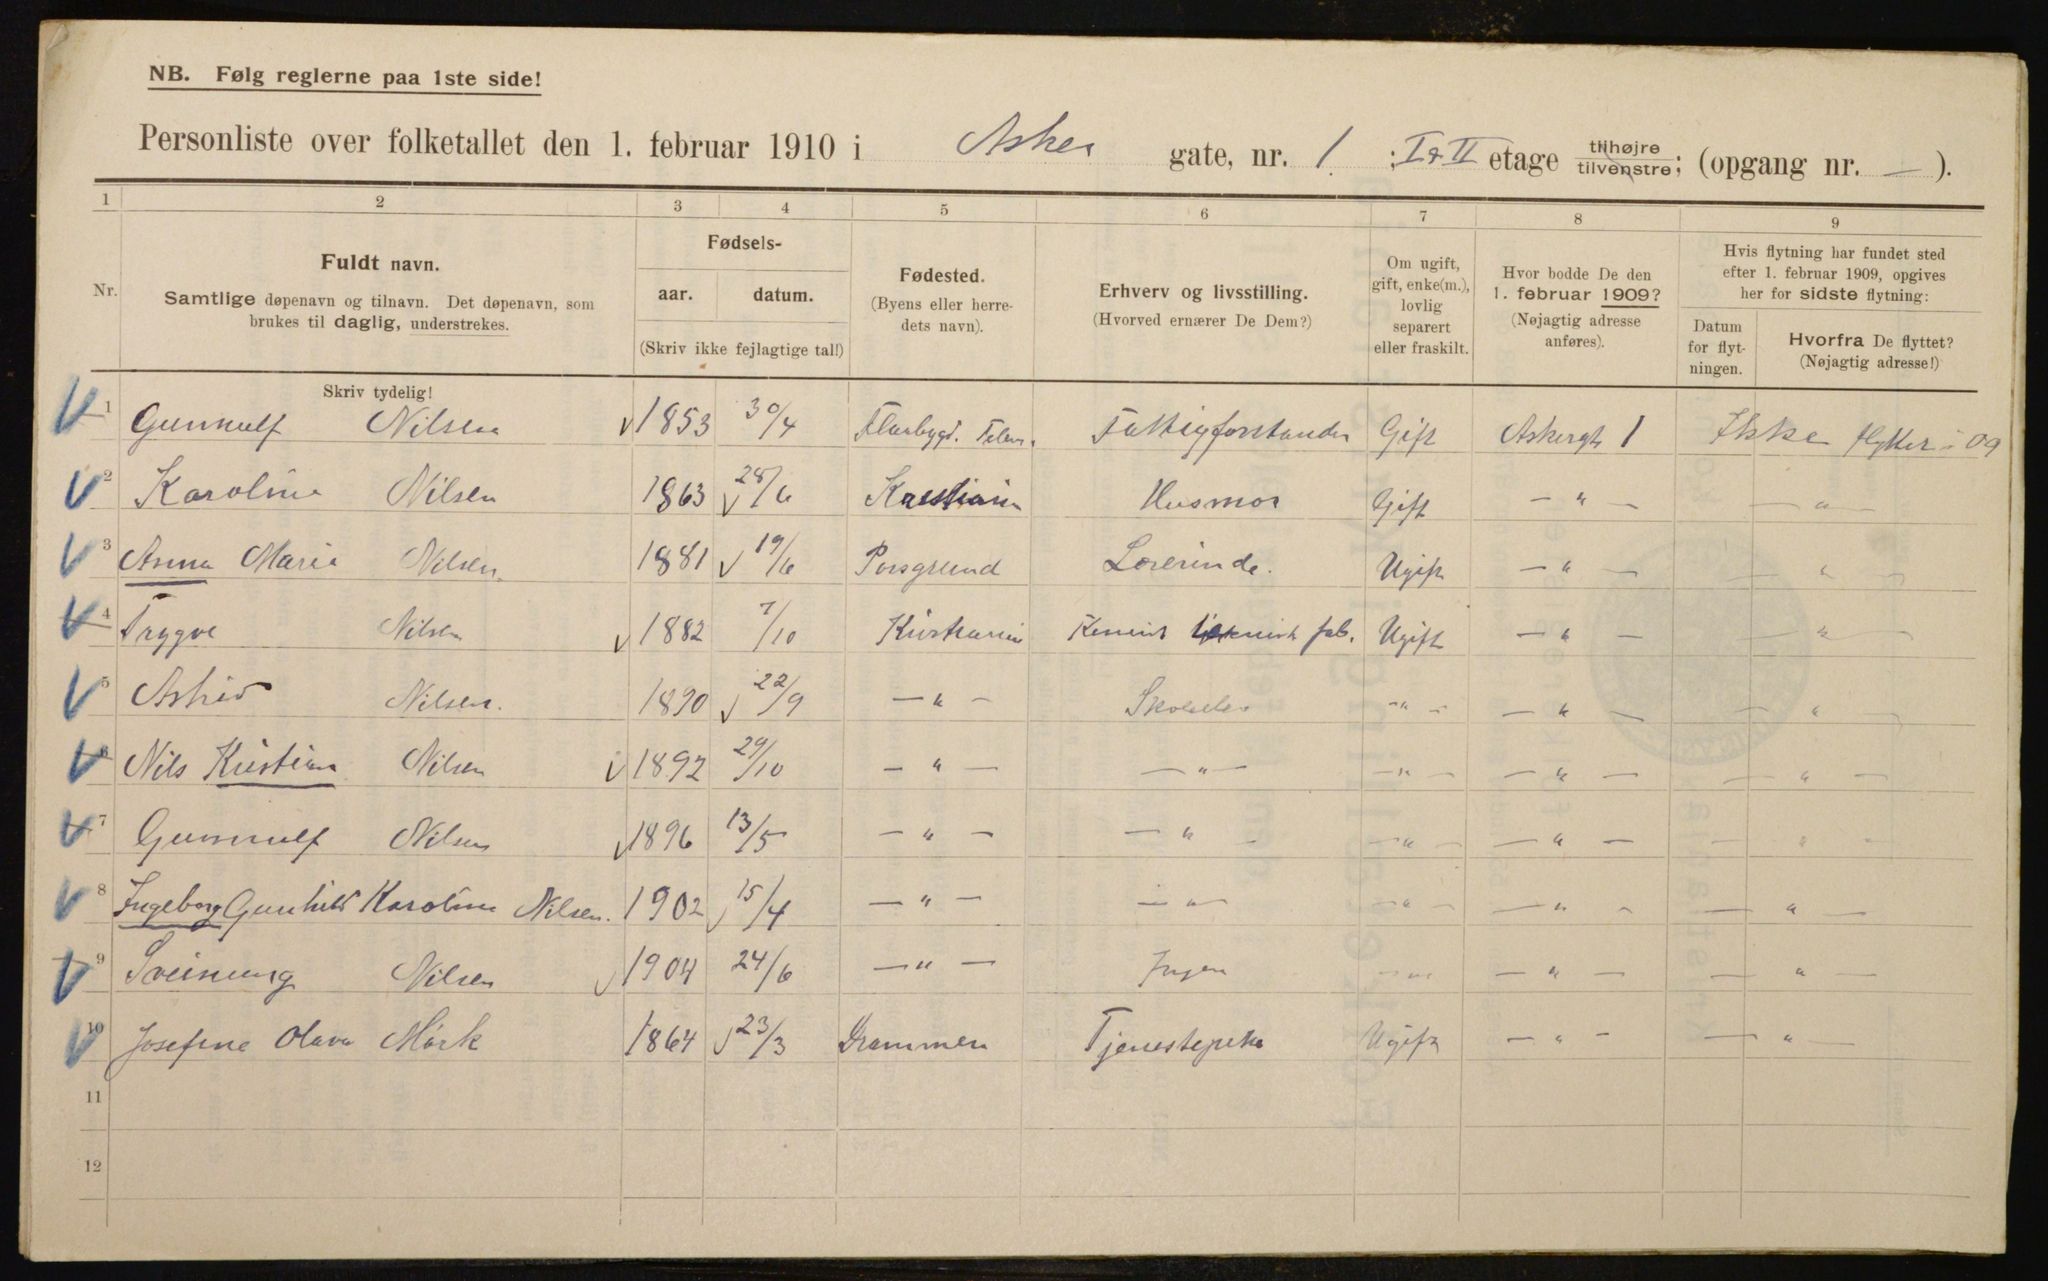 NB. Følg reglerne paa 1ste side!
Personliste over folketallet den 1. februar 1910 i Asker gate, nr. 1 ; I & II etage tilhøjre tilvenstre; (opgang nr. — ).
1 2 3 4 5 6 7 8 9
Nr.
Fuldt navn.
Samtlige døpenavn og tilnavn. Det døpenavn, som
brukes til daglig, understrekes.
Skriv tydelig!
Fødsels-
aar. datum.
(Skriv ikke fejlagtige tal!)
Fødested.
(Byens eller herre-
dets navn).
Erhverv og livsstilling.
(Hvorved ernærer De Dem?)
Om ugift,
gift, enke(m.),
lovlig
separert
eller fraskilt.
Hvor bodde De den
1. februar 1909?
(Nøjagtig adresse
anføres).
Hvis flytning har fundet sted
efter 1. februar 1909, opgives
her for sidste flytning:
Datum
for flyt-
ningen.
Hvorfra De flyttet?
(Nøjagtig adresse!)
1 Gunnulf Nilsen 1853 30/4 Flaabygd. Telem. Fattigforstander Gift Askergt 1 Ikke flyttet i 09
2 Karoline Nilsen 1863 28/6 Husmor Gift — " — — " —
3 Anna Maria Nilsen. 1881 19/6 Porsgrund Lærerinde. Ugift — " — — " —
4 Trygve Nilsen 1882 7/10 Kristiania Kemisk teknisk fab. Ugift — " — — " —
5 Astrid Nilsen. 1890 22/9 — " — — " — — " — — " —
6 Nils Kristian Nilsen 1892 29/10 — " — — " — — " — — " — — " —
7 Gunnulf Nilsen 1896 13/5 — " — — " — — " — — " — — " —
8 Ingeborg Gunhild Karoline Nilsen. 1902 15/4 — " — — " — — " — — " — — " —
9 Sveinung Nilsen 1904 24/6 — " — Ingen — " — — " — — " —
10 Josefine Olava Mörk 1864 23/3 Drammen Tjenestepike Ugift — " — — " —
11
12